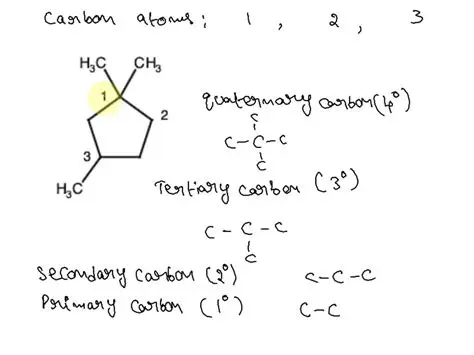 Carbon atoms; 1 , 2 , 3
H₃C CH₃
1
2
3
H₃C
quaternary carbon(4°)
C
C-C-C
C
Tertiary carbon (3°)
C - C - C
C
Secondary carbon (2°) C-C-C
Primary carbon (1°) C-C